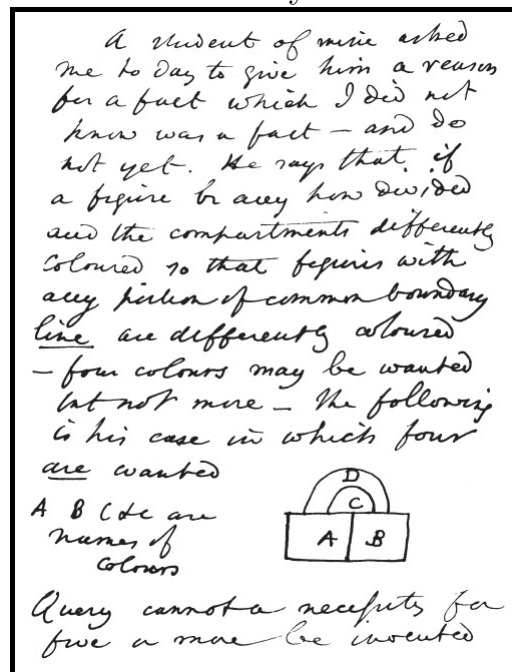 A student of mine asked
me to day to give him a reason
for a fact which I did not
know was a fact – and do
not yet. He says that if
a figure be any how divided
and the compartments differently
coloured so that figures with
any portion of common boundary
line are differently coloured
– four colours may be wanted
but not more – the following
is his case in which four
are wanted
D
C
A B
A B C &c are
names of
colours
Query cannot a necessity for
five or more be invented